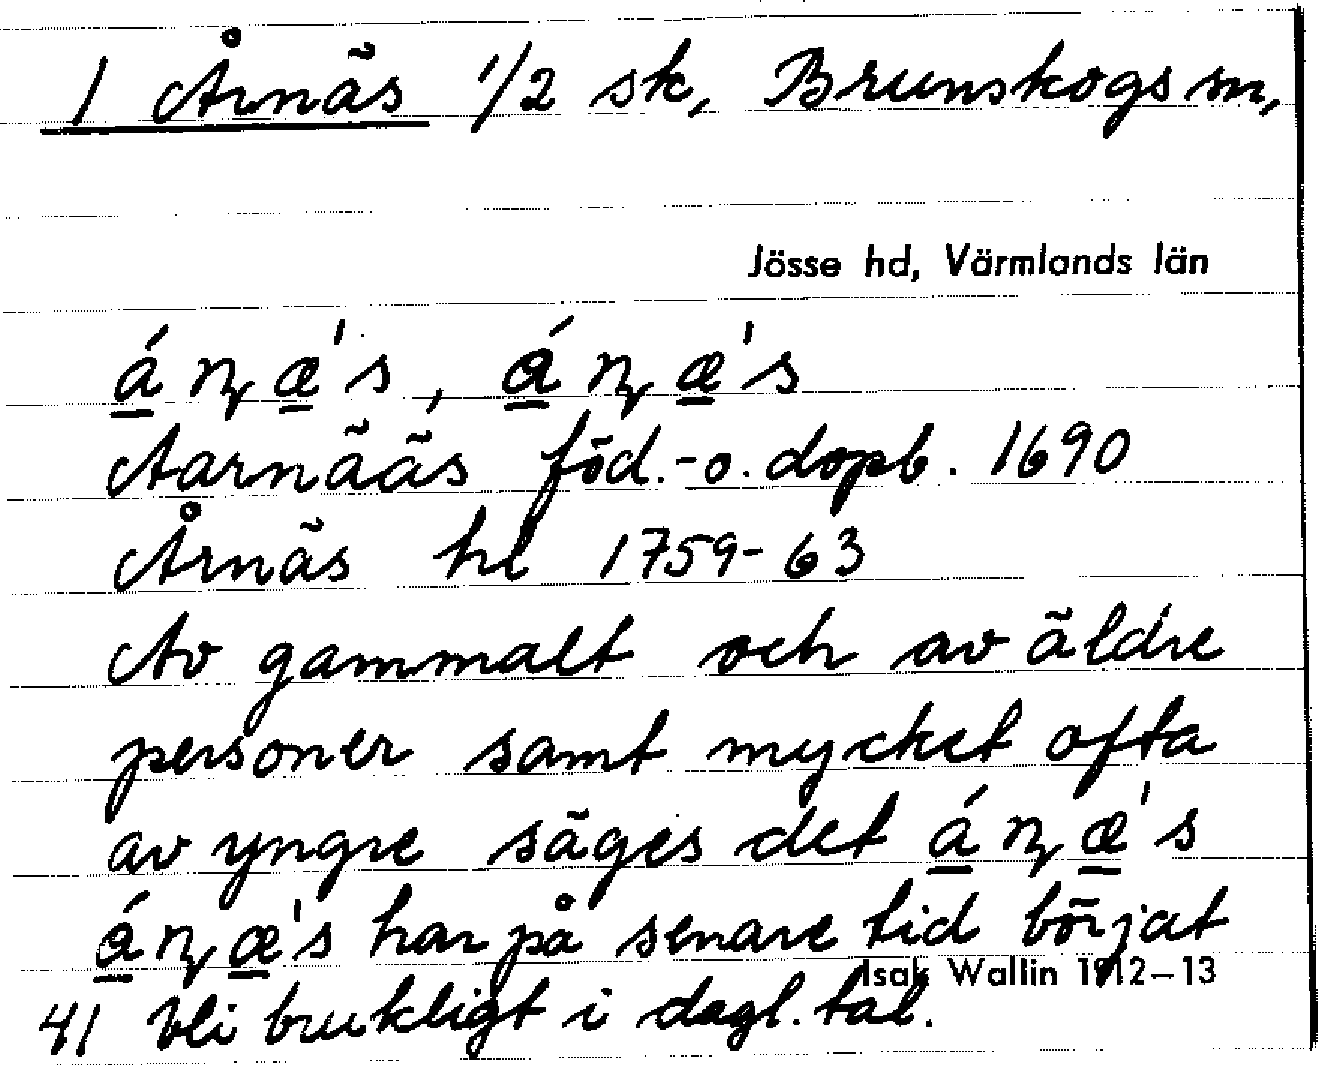 1 Årnäs 1/2 sk, Brunskogs sn,
Jösse hd, Värmlands län
áɳæ's, áɳæ's
Aarnääs föd.-o. dopb. 1690
Årnäs hl 1759-63
Av gammalt och av äldre
personer samt mycket ofta
av yngre säges det áɳæ's
áɳæ's har på senare tid börjat
41 bli brukligt i dagl. tal.
Isak Wallin 1912–13